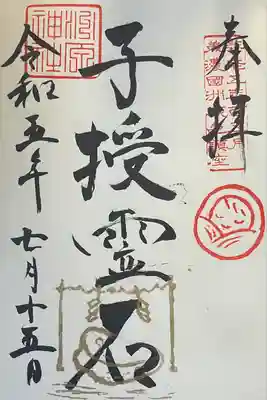 奉拝
子授霊石
令和五年 七月十五日
洲原神社